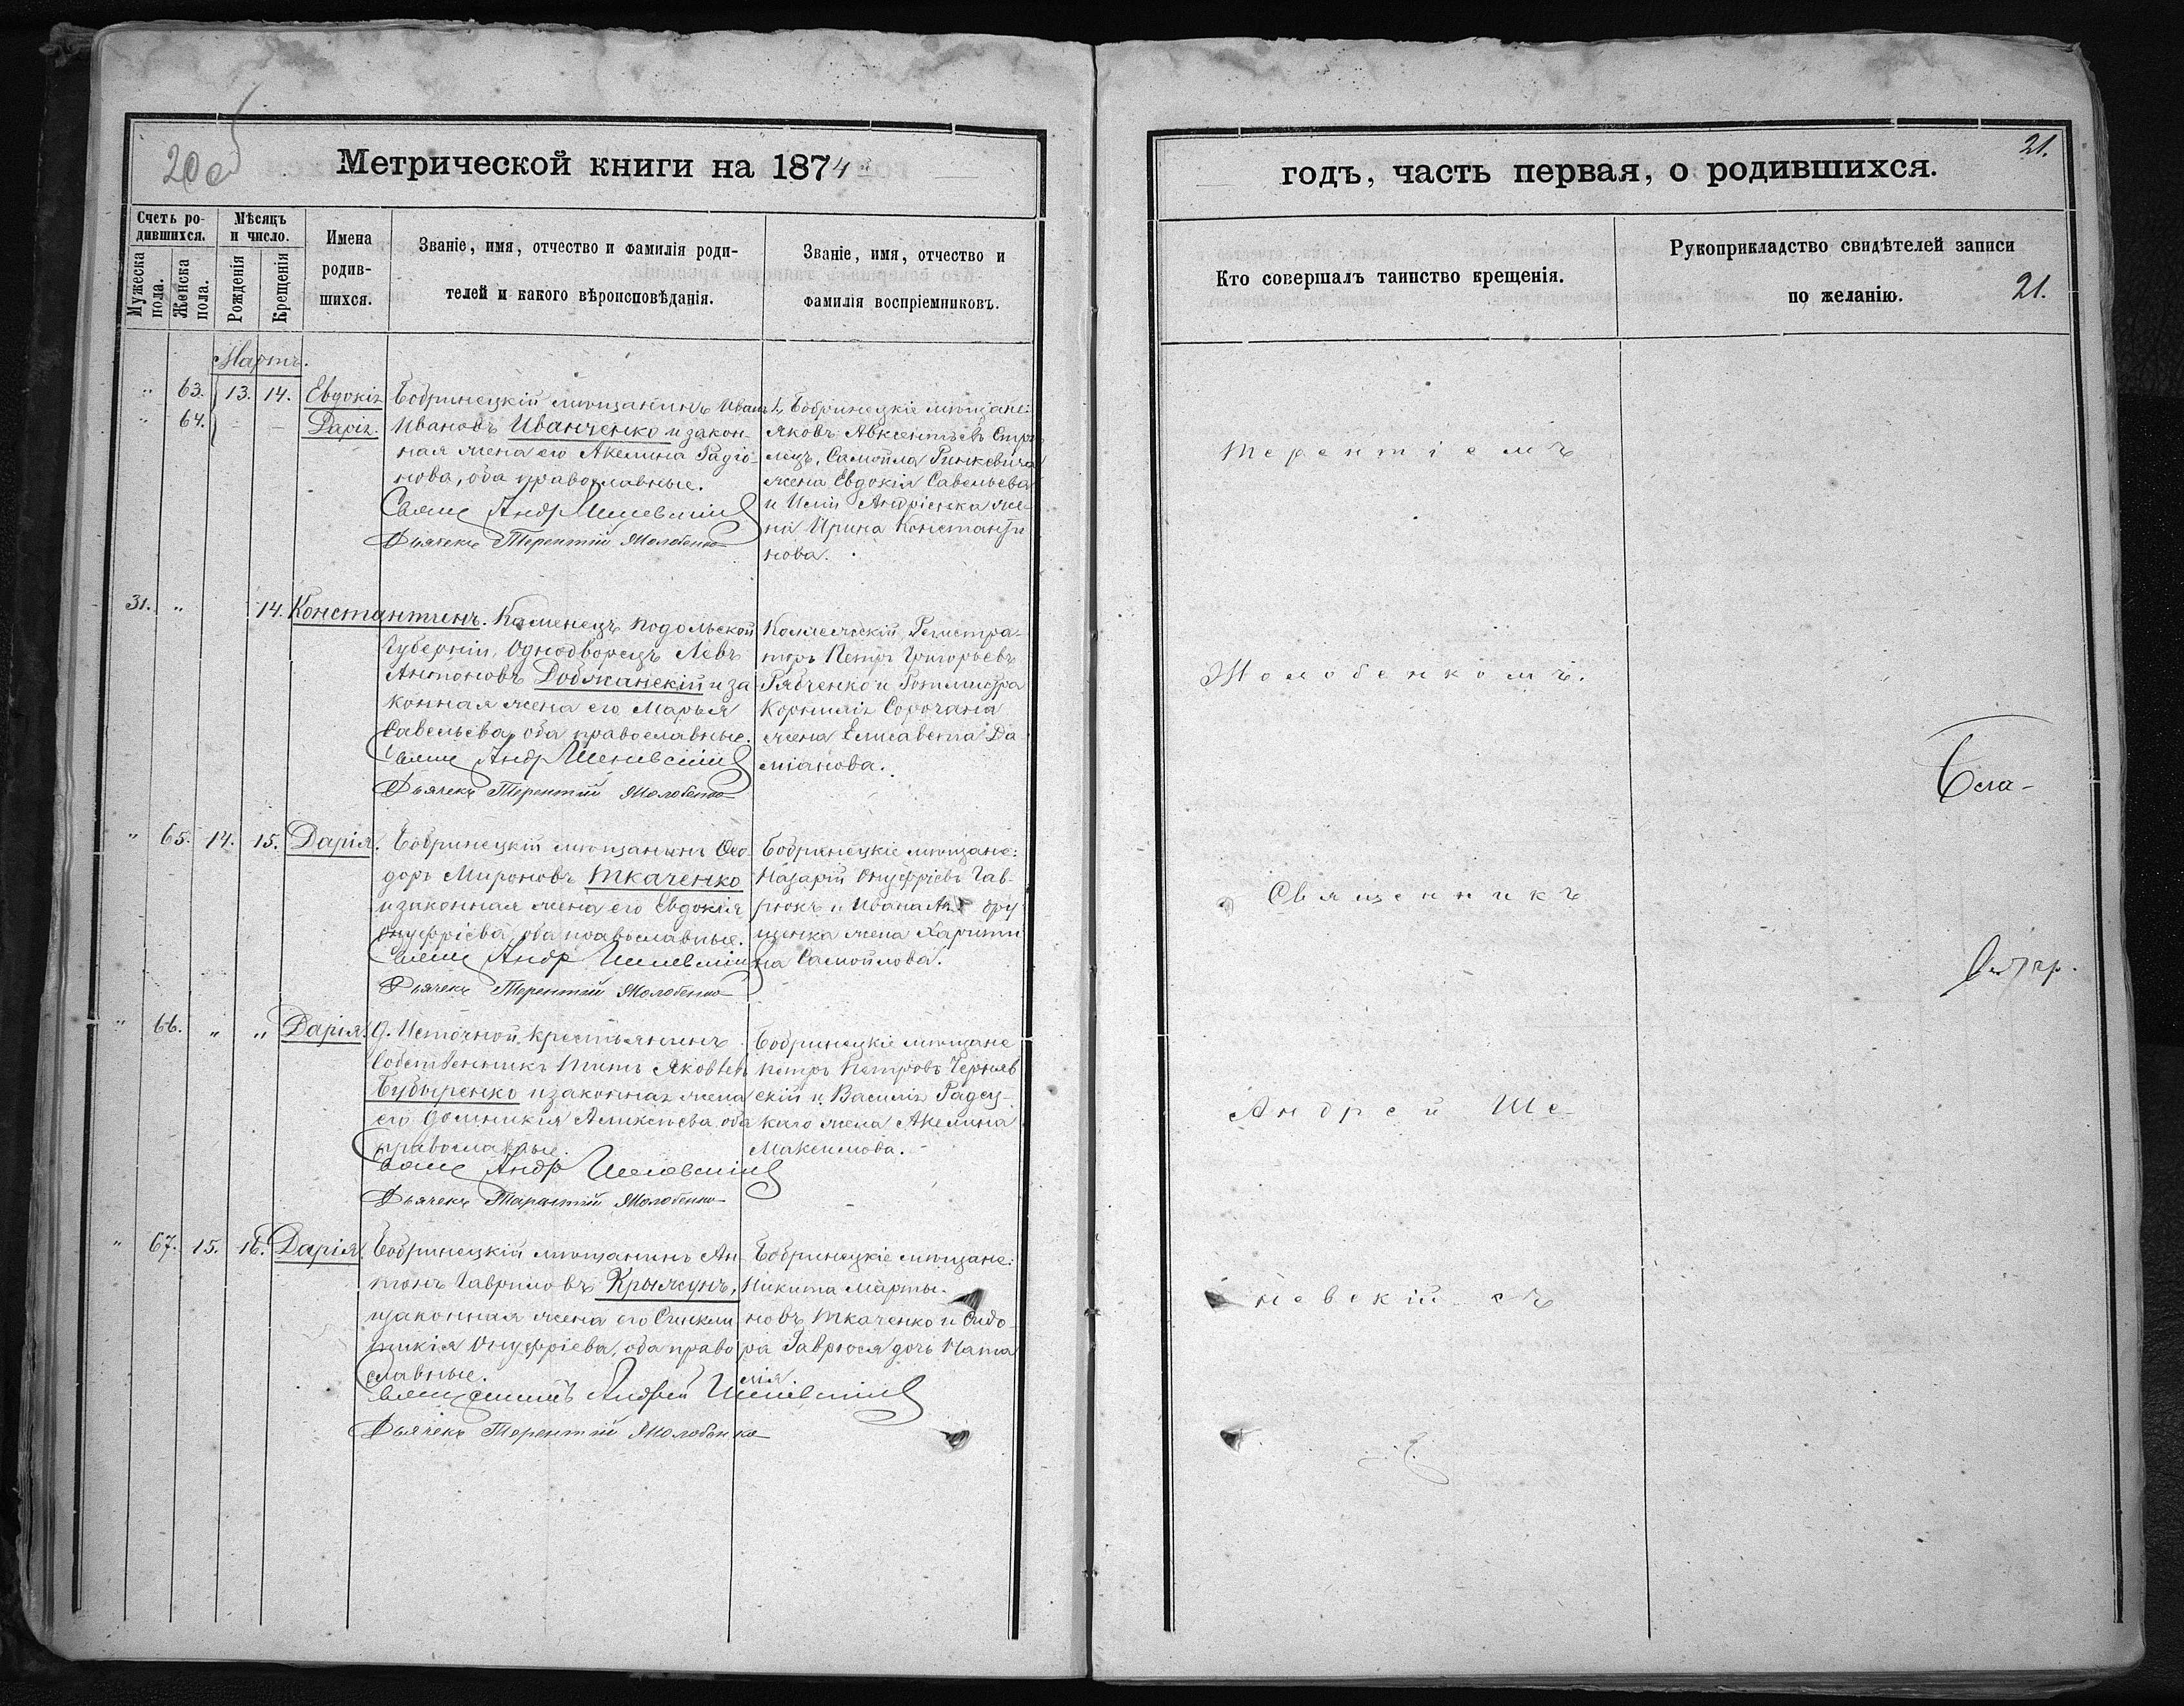 20 об
Метрической книги на 1874
Счетъ ро-
дившихся.
Мѣсяцъ
и число.
Мужеска
пола.
Женска
пола.
Рожденія
Крещенія
Имена
родив-
шихся.
Званіе, имя, отчество и фамилія роди-
телей и какого вѣроисповѣданія.
Званіе, имя, отчество и
фамилія воспріемниковъ.
Мартъ.
" 63. 13. 14. Евдокія Бобринецкій мѣщанинъ Иванъ
" 64. - - Дарія. Ивановъ Иванченко и закон-
ная жена его Акелина Радіо-
нова, оба православные.
Свящ Андр Шеневскій
Дьячекъ Терентій Молобенко
Бобринецкіе мѣщане:
Яковъ Авксентьевъ
лецъ, Самойла Ринкевича
жена Евдокія Савельева
и Андріенка же-
на Ирина Константи
нова.
31. " 14. Константинъ. Каменецъ Подольской
Губерніи, Однодворецъ Левъ
Антоновъ Добжанскій и за
конная жена его Марья
Савельева, оба православные.
Свящ Андр Шеневскій
Дьячекъ Терентій Молобенко
Коллежскій Регистра-
торъ Петръ Григорьевъ
Рябченко и Ротмистра
Корнилія Сорочана
жена Елисавета Да-
міанова.
" 65. 14. 15. Дарія. Бобринецкій мѣщанинъ Ѳео
доръ Мироновъ Ткаченко
и законная жена его Евдокія
Онуфріева, оба православные.
Свящ Андр Шеневскій
Дьячекъ Терентій Молобенко
Бобринецкіе мѣщане:
Назарій Онуфріевъ Гав-
рюкъ и Ивана Андру
щенка жена Харити
на Самойлова.
" 66. " " Дарія. Источной крестьянинъ
Собственникъ Титъ Яковлевъ
Бубыренко и законная жена
его Домникія Алексѣева оба
православные.
Свящ Андр Шеневскій
Дьячекъ Терентій Молобенко
Бобринецкіе мѣщане
Петръ Петровъ Черняв
скій и Василія Радец-
каго жена Акелина
Максимова.
" 67. 15. 16. Дарія. Бобринецкій мѣщанинъ Ан-
тонъ Гавриловъ Крыжунъ,
и законная жена его Синкли
тикія Онуфріева, оба право
славные.
Священникъ Андрей Шеневскій
Дьячекъ Терентій Молобенко
Бобринецкіе мѣщане:
Никита Марты-
новъ Ткаченко и Сидо-
ра Гаврюся дочь Ната
лія.
21.
годъ, часть первая, о родившихся.
Кто совершалъ таинство крещенія.
Рукоприкладство свидѣтелей записи
по желанію.
21.
Священникъ
Андрей Ше-
невскій съ
Терентіемъ
Молобенкомъ.